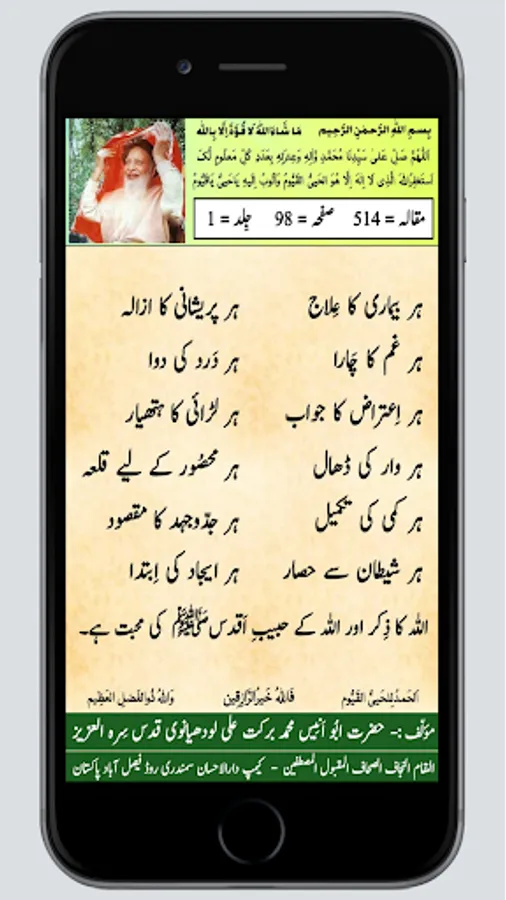 بِسمِ اللهِ الرَّحمٰنِ الرَّحِیمِ مَا شَاءَاللهُ لَا قُوَّةَ اِلَّا بِالله
اَللّٰهُمَّ صَلِّ عَلیٰ سَیِّدِنَا مُحَمَّدٍ وَّاٰلِهٖ وَعِترَتِهٖ بِعَدَدِ کُلِّ مَعلُومٍ لَّکَ
اَستَغفِرُاللهَ الَّذِی لَا اِلٰهَ اِلَّا هُوَ الحَیُّ القَیُّومُ وَاَتُوبُ اِلَیهِ یَاحَیُّ یَاقَیُّومُ
مقالہ = 514 صفحہ = 98 جِلد = 1
ہر بیماری کا عِلاج ہر پریشانی کا ازالہ
ہر غم کا چارا ہر دَرد کی دوا
ہر اِعتراض کا جواب ہر لڑائی کا ہتھیار
ہر وار کی ڈھال ہر محصُور کے لیے قلعہ
ہر کمی کی تکمیل ہر جدّوجہد کا مقصُود
ہر شیطان سے حصار ہر ایجاد کی اِبتدا
اللہ کا ذِکر اور اللہ کے حبیبِ اَقدس ﷺ کی محبت ہے۔
اَلحَمدُلِلحَیِّ القَیُّوم فَاللهُ خَیرُالرَّازِقِین وَاللهُ ذُوالفَضلِ العَظِیم
مؤلّف :- حضرت ابُو اَنیس محمد برکت علی لودھیانوی قدس سِرہ العزیز
المقام النجاف الصحاف المقبول المصطفین - کیمپ دارالاحسان سمندری روڈ فیصل آباد پاکستان